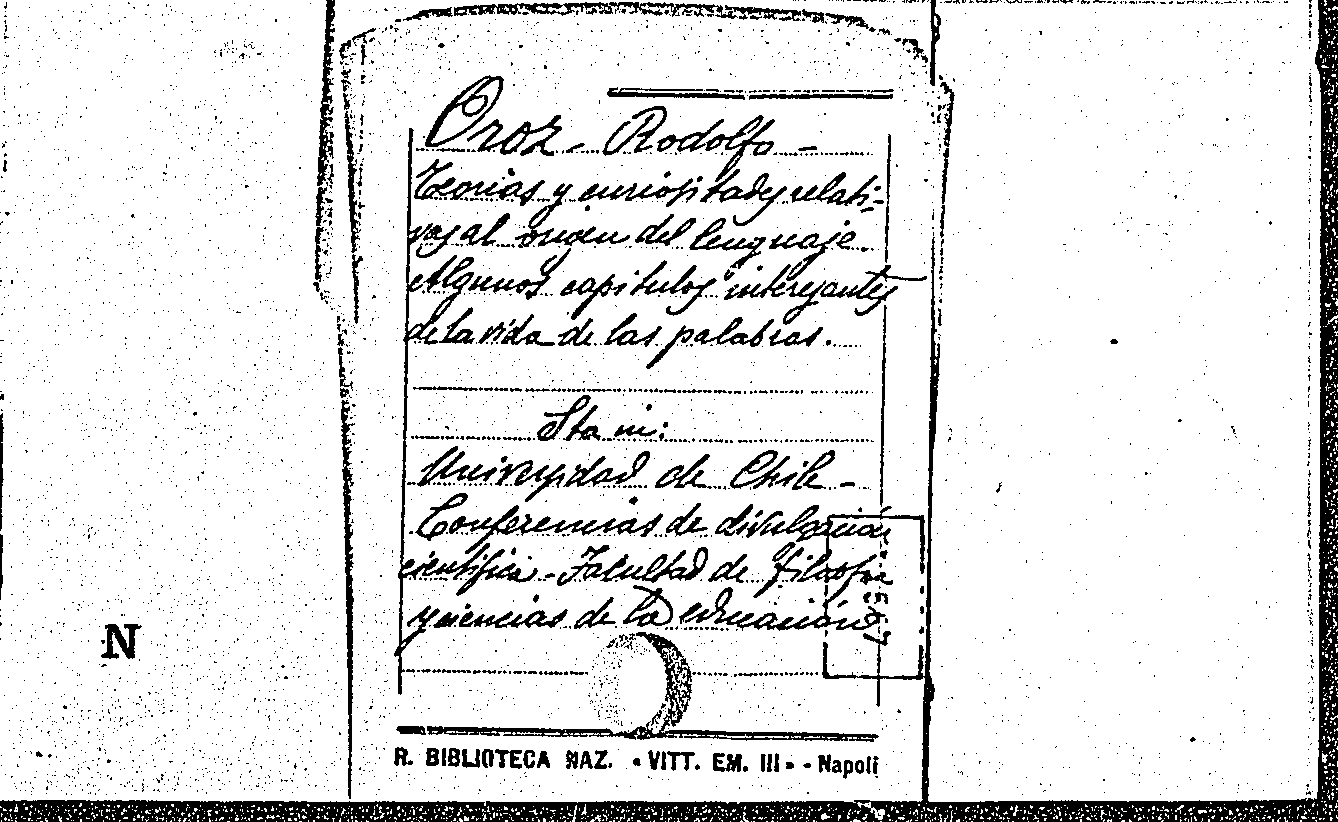 Oroz - Rodolfo -
Teorías y curiosidades relati-
vas al origen del lenguaje.
Algunos capítulos interesantes
de la vida de las palabras.
Sta in:
Universidad de Chile -
Conferencias de divulgación
científica - Facultad de filosofía
y ciencias de la educación
N
R. BIBLIOTECA NAZ. «VITT. EM. III» - Napoli